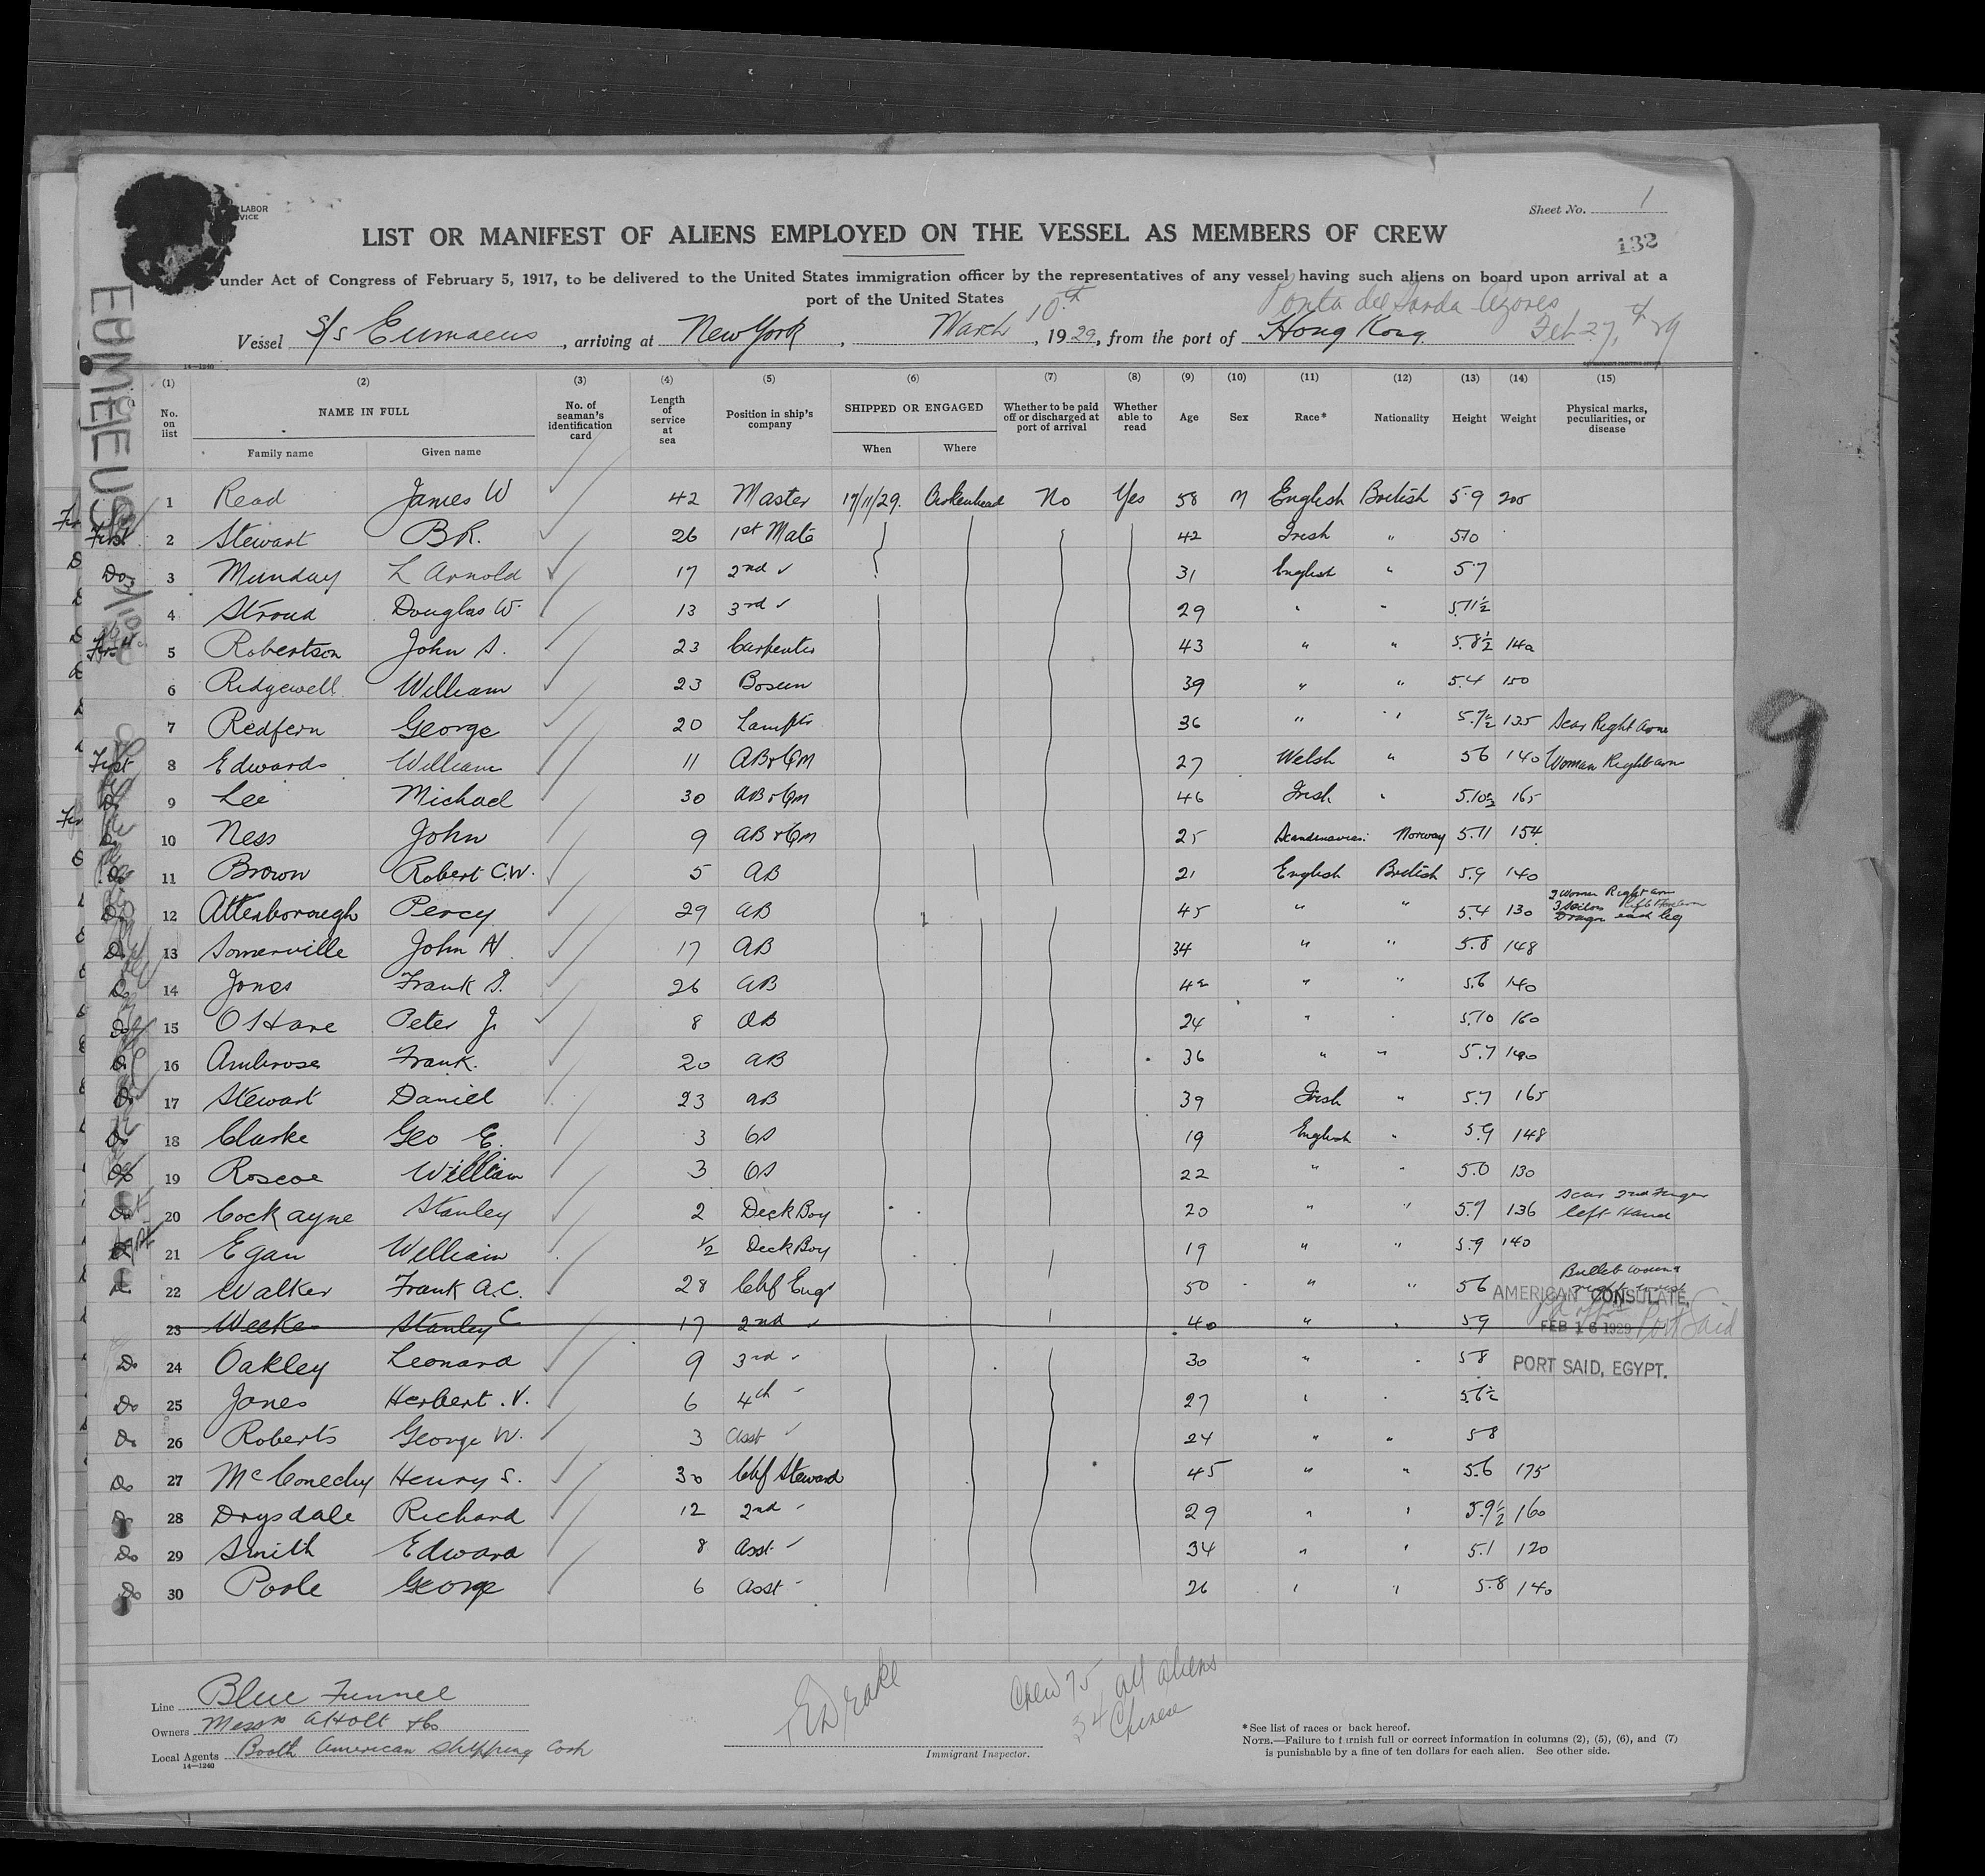 LABOR
VICE
Sheet No. 1
LIST OR MANIFEST OF ALIENS EMPLOYED ON THE VESSEL AS MEMBERS OF CREW
132
under Act of Congress of February 5, 1917, to be delivered to the United States immigration officer by the representatives of any vessel having such aliens on board upon arrival at a
port of the United States
Ponta del Garda Azores
Vessel S/S Eumaeus, arriving at New York, March 10th, 1929, from the port of Hong Kong. Feb 27, 29
14-1240
EUMAEUS
(1) (2) (3) (4) (5) (6) (7) (8) (9) (10) (11) (12) (13) (14) (15)
No. on list NAME IN FULL No. of seaman's identification card Length of service at sea Position in ship's company SHIPPED OR ENGAGED Whether to be paid off or discharged at port of arrival Whether able to read Age Sex Race* Nationality Height Weight Physical marks, peculiarities, or disease
Family name Given name When Where
1 Read James W 42 Master 17/11/29. Birkenhead No Yes 58 M English British 5.9 200
First 2 Stewart B R. 26 1st Mate 42 Irish " 5.10
Do 3 Munday L Arnold 17 2nd 31 English " 5.7
4 Stroud Douglas W. 13 3rd 29 " " 5.11½
5 Robertson John S. 23 Carpenter 43 " " 5.8½ 140
6 Ridgewell William 23 Bosun 39 " " 5.4 150
7 Redfern George 20 Lamptr 36 " " 5.7½ 135 Scar Right arm
First 8 Edwards William 11 AB & QM 27 Welsh " 5.6 140 Woman Right arm
Do 9 Lee Michael 30 AB & QM 46 Irish " 5.10½ 165
Do 10 Ness John 9 AB & QM 25 Scandinavian Norway 5.11 154
Do 11 Brown Robert C.W. 5 AB 21 English British 5.9 140
Do 12 Attenborough Percy 29 AB 45 " " 5.4 130 2 Women Right arm 3 Sailors Dragon each leg
Do 13 Somerville John H. 17 AB 34 " " 5.8 148
Do 14 Jones Frank S. 26 AB 42 " " 5.6 140
Do 15 O'Hare Peter J. 8 AB 24 " " 5.10 160
Do 16 Ambrose Frank. 20 AB 36 " " 5.7
Do 17 Stewart Daniel 23 AB 39 Irish " 5.7 165
Do 18 Clarke Geo E. 3 OS 19 English " 5.9 148
Do 19 Roscoe William 3 OS 22 " " 5.0 130
Do 20 Cockayne Stanley 2 Deck Boy 20 " " 5.7 136 Scar 2nd Finger left Hand
21 Egan William ½ Deck Boy 19 " " 5.9 140
22 Walker Frank A.C. 28 Chf Engr 50 " " 5.6 Bullet wound
AMERICAN CONSULATE,
23 Weeke Stanley C 17 2nd 40 " " 5.9
FEB 16 1929 Port Said
Do 24 Oakley Leonard 9 3rd 30 " " 5.8
PORT SAID, EGYPT.
Do 25 Jones Herbert V. 6 4th 27 " " 5.6½
Do 26 Roberts George W. 3 Asst 24 " " 5.8
Do 27 McConechy Henry S. 30 Chf Steward 45 " " 5.6 175
Do 28 Drysdale Richard 12 2nd 29 " " 5.9½ 160
Do 29 Smith Edward 8 Asst 34 " " 5.1 120
Do 30 Poole George 6 Asst 26 " " 5.8 140
9
Line Blue Funnel
Owners Messrs A Holt & Co
Local Agents Booth American Shipping Corp
14-1240
E Drake
Immigrant Inspector.
Crew 75 all aliens
34 Chinese
*See list of races on back hereof.
NOTE.—Failure to furnish full or correct information in columns (2), (5), (6), and (7)
is punishable by a fine of ten dollars for each alien. See other side.